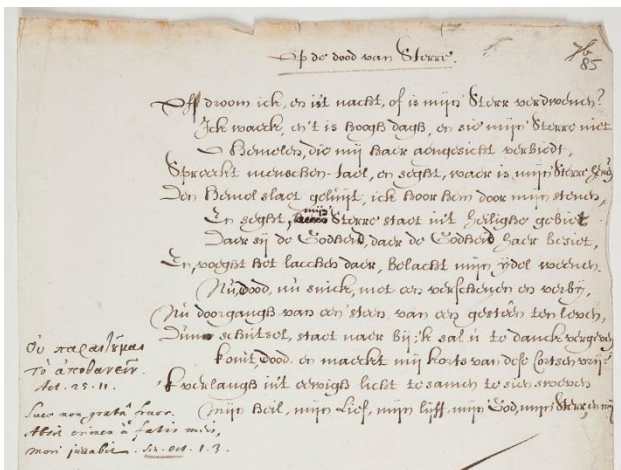 Op de dood van Sterre.
7b
85
Off droom ick, en ist nacht, of is mijn Sterr verdwenen?
Ick waeck, en 't is hoogh dagh, en sie mijn Sterre niet
O Hemelen, die mij haer aengesicht verbiedt,
Spreeckt menschen-tael, en seght, waer is mijn Sterre
Den Hemel slaet geluijt, ick hoor hem door mijn stenen,
En seght, mijn Sterre staet int heilighe gebiet
Daer sij de Godheid, daer de Godheid haer besiet,
En, voeght het lacchen daer, belacht mijn ijdel weenen.
Nu, dood, nu snick, met een verschenen en verbij,
Nu doorgangh van een steen, van een gesteên ten leven,
Dunn schutsel, staet naer bij; 'k sal u te danck vergeven
Komt, dood, en maeckt mij korts van dese Cortsen vrij:
'k verlangh int eewigh licht te samen te sien sweven
Mijn heil, mijn Lief, mijn lijff, mijn God, mijn Sterr, en mij
Οὐ παραιτῦμαι
τὸ ἀποθανεῖν.
Act. 25. 11.
Absit crimen à fatis meis,
mori juvabit. Oct. 1. 3.